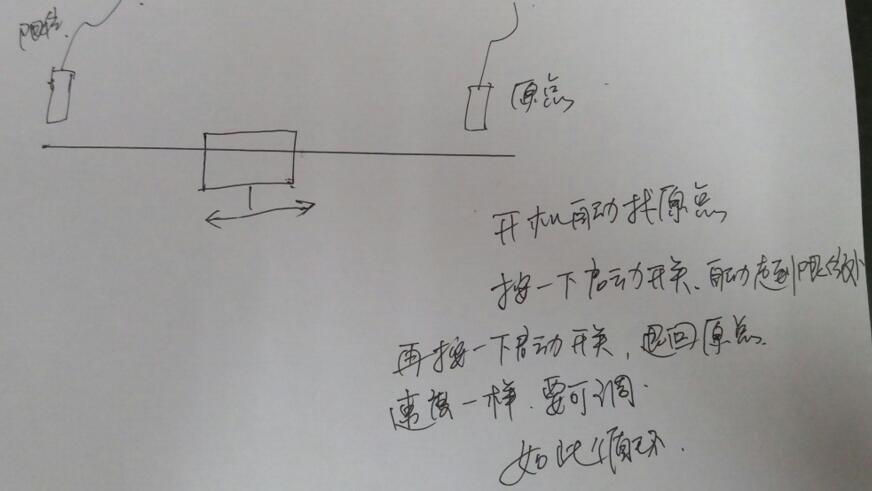 限位
原点
开机自动找原点
按一下启动开关、自动走到限位处
再按一下启动开关，退回原点.
速度一样.要可调.
如此循环.